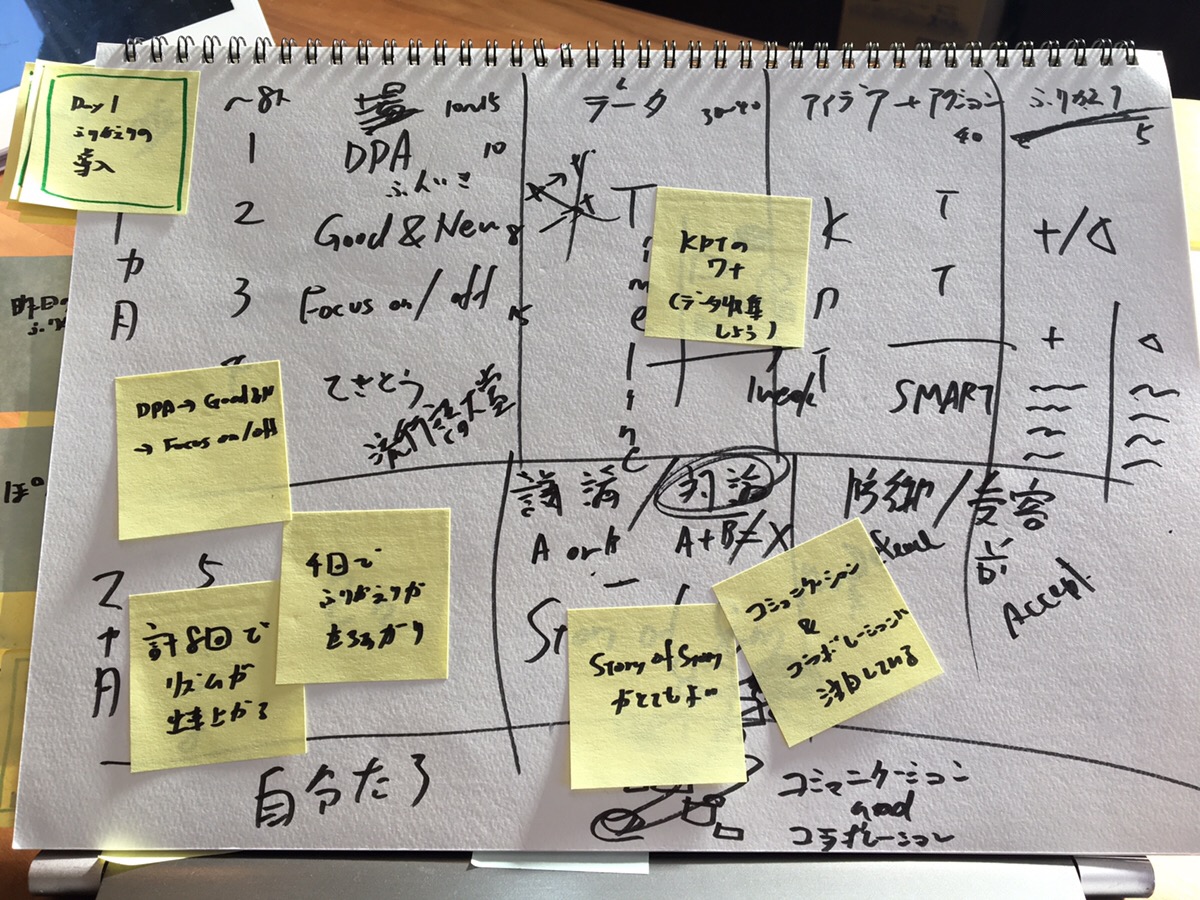 Day 1
ふりかえりの
導入
場
10~15
データ
30~40
アイデア + アクション
40
ふりかえり
5
1
DPA
10
ふんいき
2
Good & New
8
3
Focus on/off
15
1
カ
月
Timeline
KPTの
ワナ
(データ収集
しよう)
K
T
T
T
1week
SMART
+/△
+
△
DPA → Good&N
→ Focus on/off
流行語大賞
2
ヶ
月
5
計8回で
リズムが
出来上がる
4回で
ふりかえりが
議論/対話
A or A
A+B=X
Story of Story
がとてもよい
コミュニケーション
&
コラボレーションに
注目している
防御/受容
Accept
自分たち
コミュニケーション
and
コラボレーション
昨日の